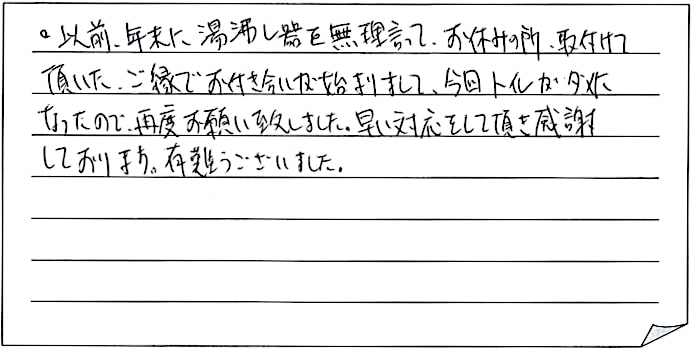 。以前、年末に、湯沸し器を無理言って、お休みの所、取付けて
頂いた、ご縁でお付き合いが始まりまして、今回トイレがダメに
なったので、再度お願い致しました。早い対応をして頂き感謝
しております。有難うございました。